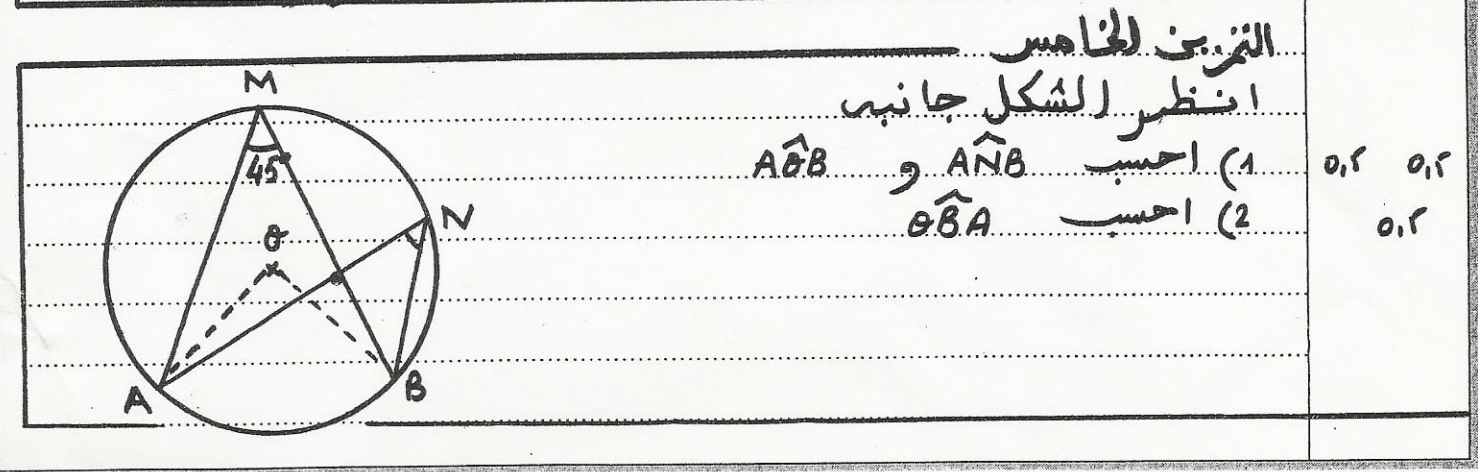 التمرين الخامس
انظر الشكل جانبه
1) احسب AN̂B و AÔB
0,5 0,5
2) احسب OB̂A
0,5
M
45°
N
O
A
B